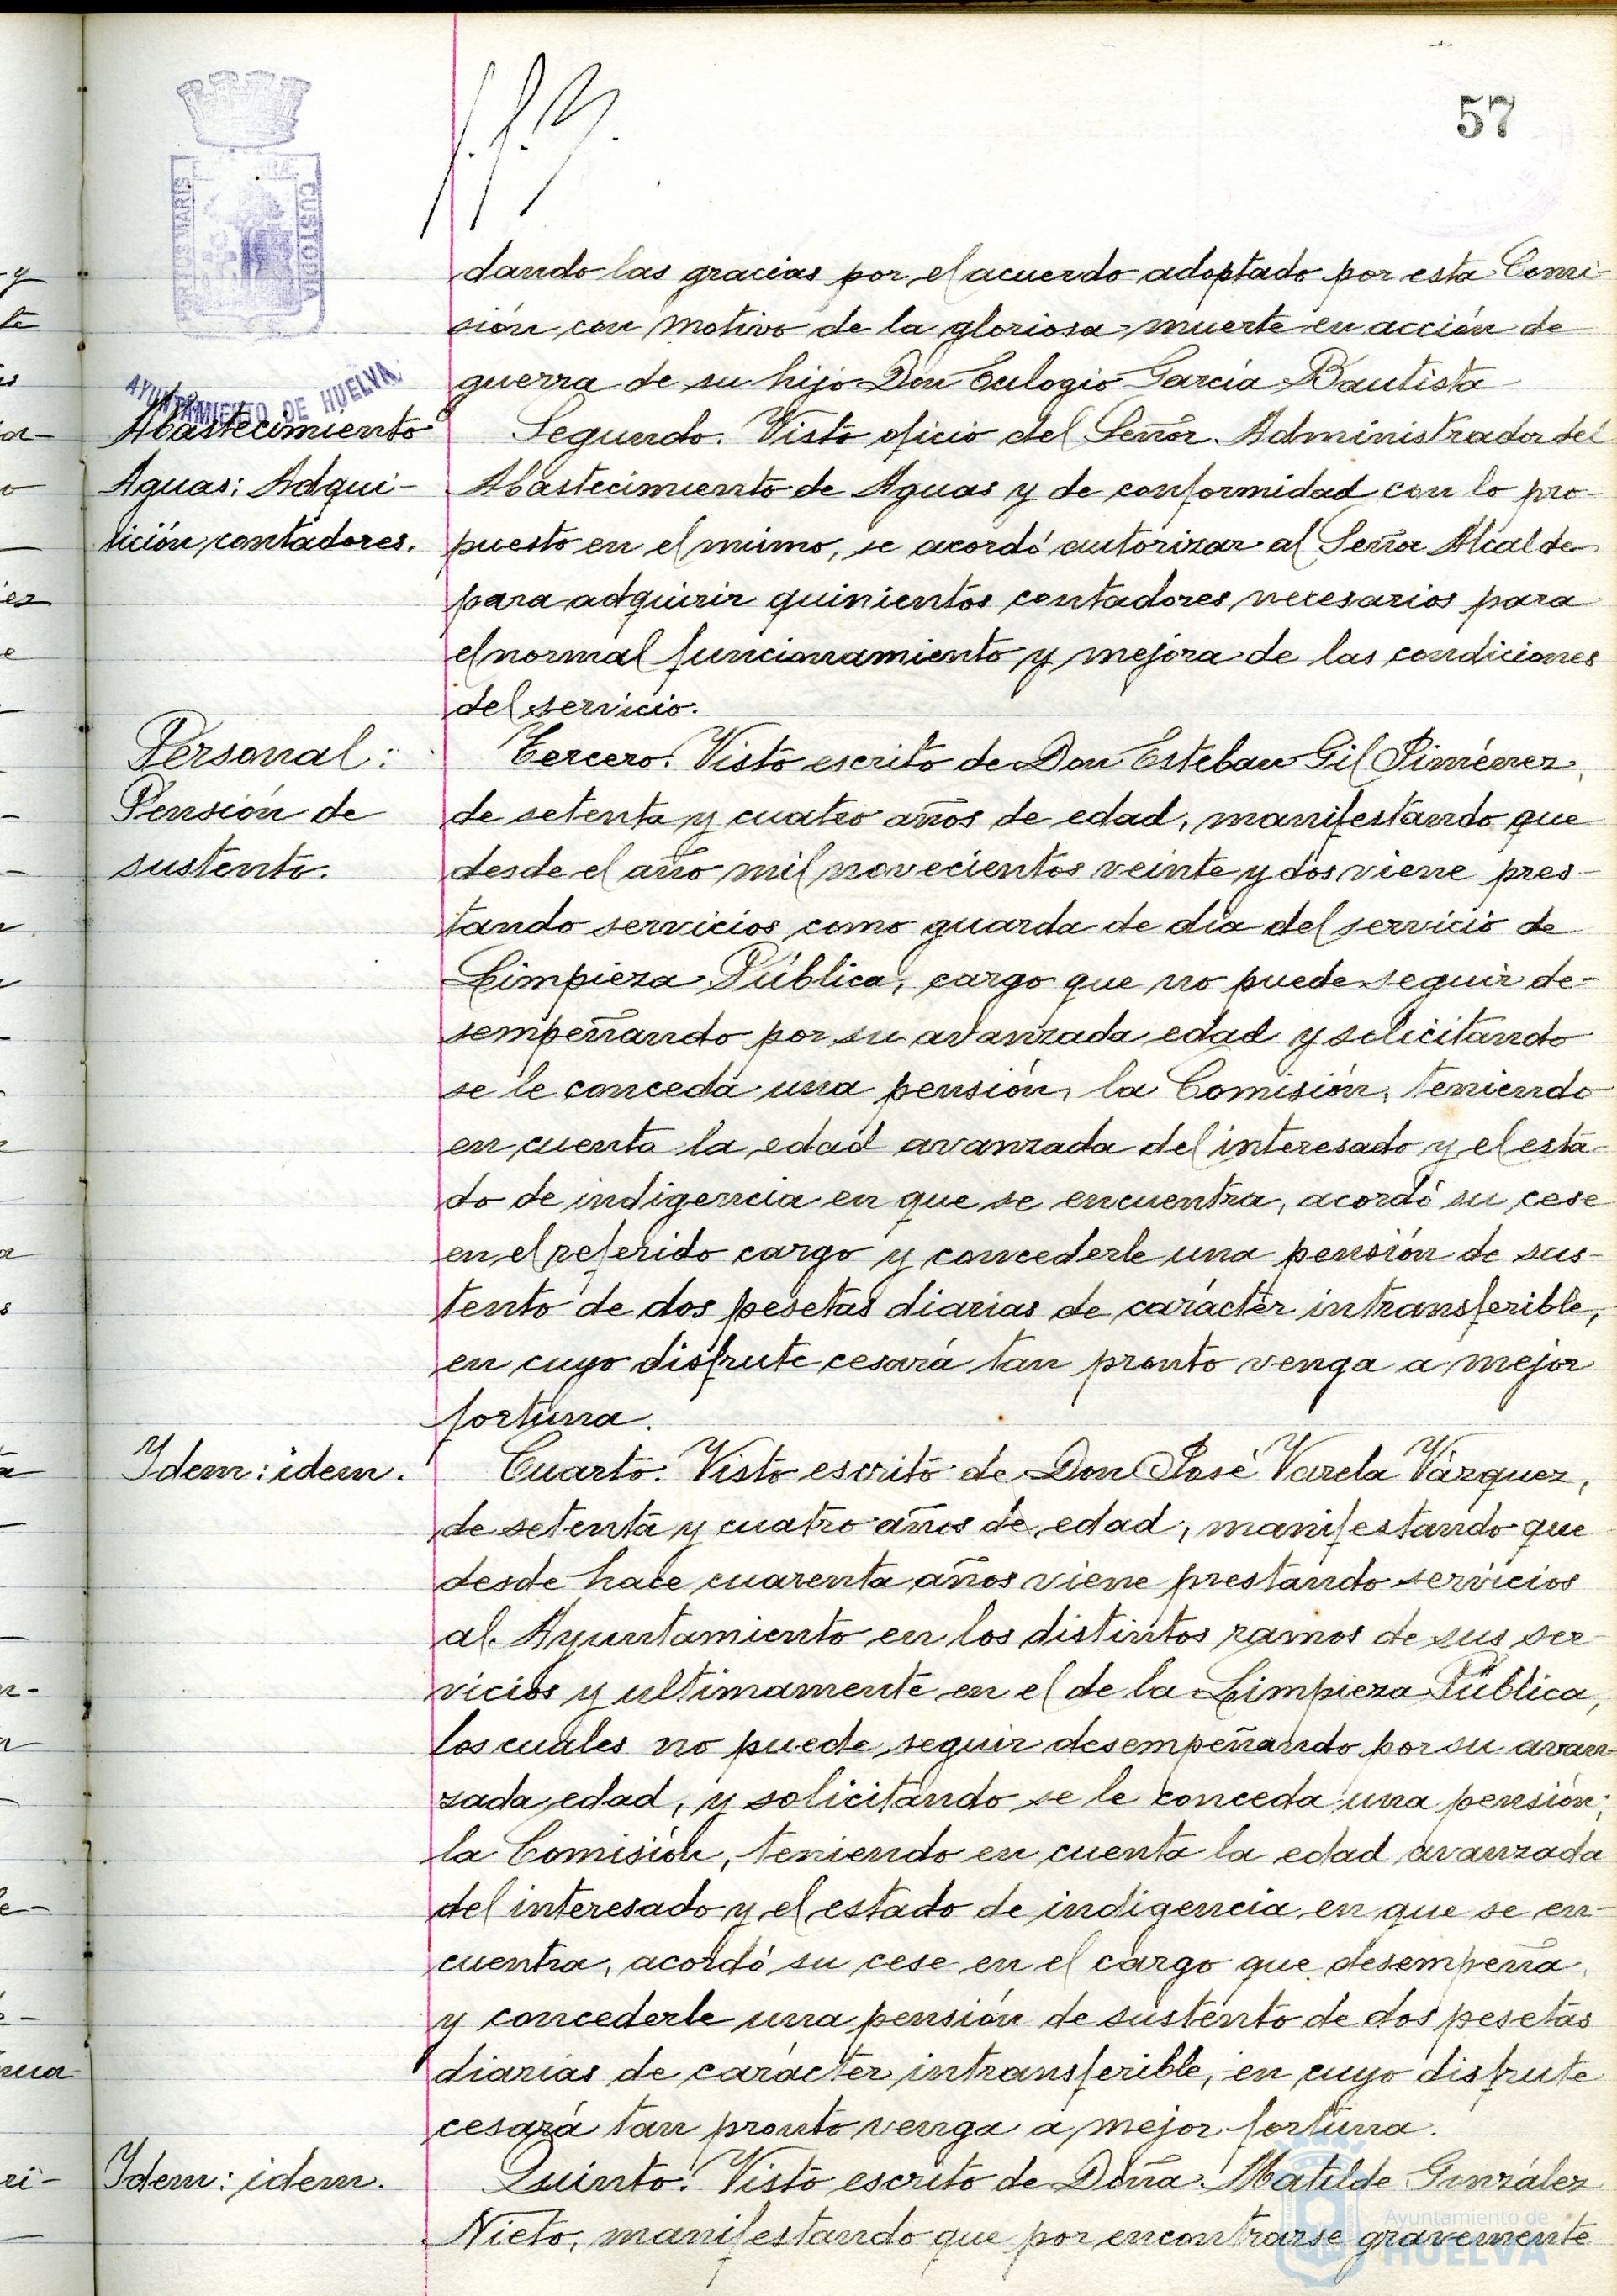 57
AYUNTAMIENTO DE HUELVA
dando las gracias por el acuerdo adoptado por esta Comi-
sión con motivo de la gloriosa muerte en acción de
guerra de su hijo Don Eulogio García Bautista
Abastecimiento
Aguas: Adqui-
sición contadores.
Segundo. Visto oficio del Señor Administrador del
Abastecimiento de Aguas y de conformidad con lo pro-
puesto en el mismo, se acordó autorizar al Señor Alcalde
para adquirir quinientos contadores necesarios para
el normal funcionamiento y mejora de las condiciones
del servicio.
Personal:
Pensión de
sustento.
Tercero. Visto escrito de Don Esteban Gil Jiménez,
de setenta y cuatro años de edad, manifestando que
desde el año mil novecientos veinte y dos viene pres-
tando servicios como guarda de día del servicio de
Limpieza Pública, cargo que no puede seguir de-
sempeñando por su avanzada edad y solicitando
se le conceda una pensión, la Comisión, teniendo
en cuenta la edad avanzada del interesado y el esta-
do de indigencia en que se encuentra, acordó su cese
en el referido cargo y concederle una pensión de sus-
tento de dos pesetas diarias de carácter intransferible,
en cuyo disfrute cesará tan pronto venga a mejor
fortuna.
Idem: idem.
Cuarto. Visto escrito de Don José Varela Vázquez,
de setenta y cuatro años de edad, manifestando que
desde hace cuarenta años viene prestando servicios
al Ayuntamiento en los distintos ramos de sus ser-
vicios y ultimamente en el de la Limpieza Pública,
los cuales no puede seguir desempeñando por su avan
zada edad, y solicitando se le conceda una pensión;
la Comisión, teniendo en cuenta la edad avanzada
del interesado y el estado de indigencia en que se en-
cuentra, acordó su cese en el cargo que desempeña
y concederle una pensión de sustento de dos pesetas
diarias de carácter intransferible, en cuyo disfrute
cesará tan pronto venga a mejor fortuna.
Idem: idem.
Quinto. Visto escrito de Doña Matilde González
Nieto, manifestando que por encontrarse gravemente
Ayuntamiento de
HUELVA